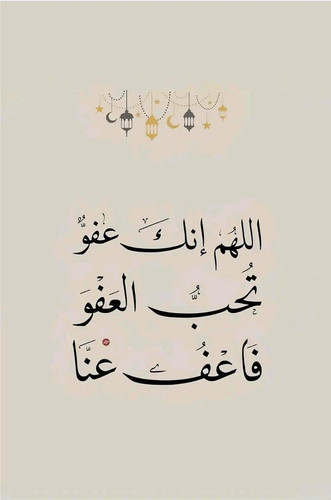 اللهُم إنك عفوٌّ
تُحبُّ العَفْوَ
فَاعْفُ عْنَّا